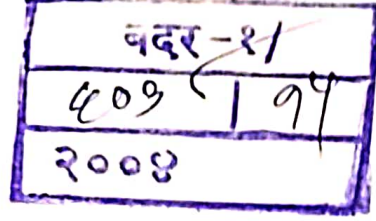 वदर-१/
८०७ | १५
२००४